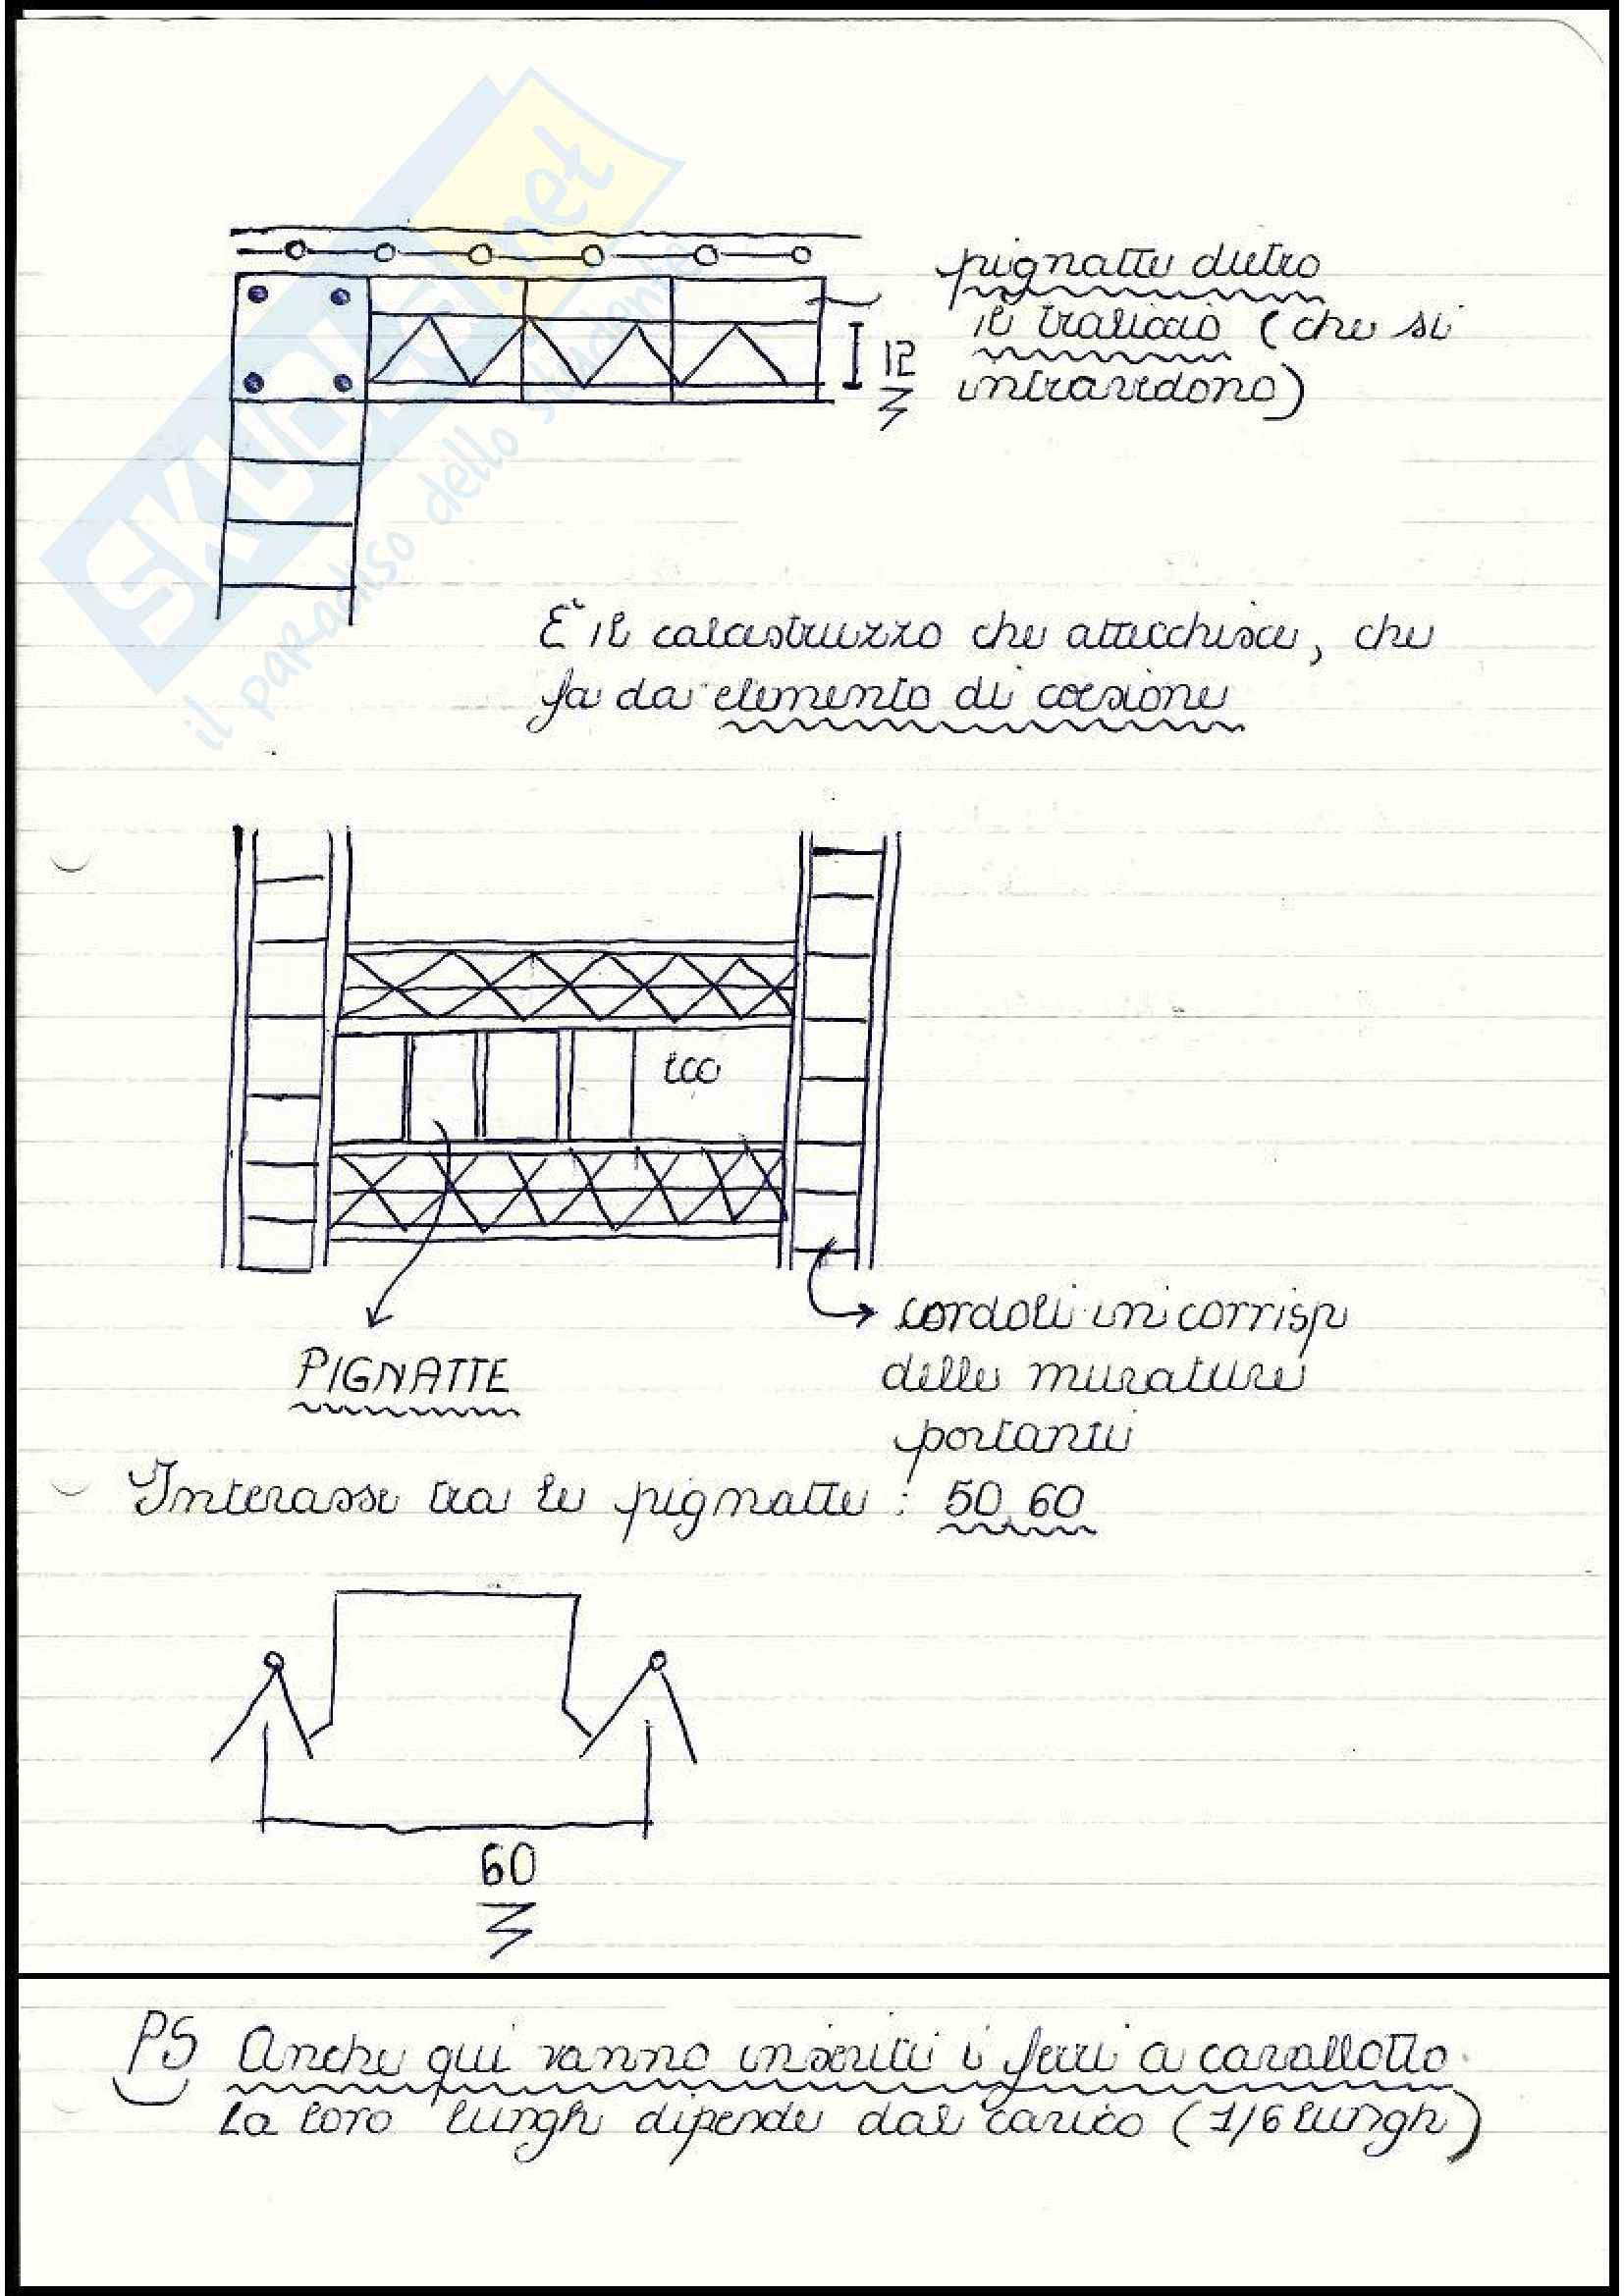 SKUOLA.net
il paradiso dello studente
pignatte dietro
il traliccio (che si
intravedono)
12
E' il calcestruzzo che attecchisce, che
fa da elemento di coesione
ecc
PIGNATTE
cordoli in corrisp
delle murature
portanti
Interasse tra le pignatte : 50, 60
60
PS Anche qui vanno inseriti i ferri a cavallotto.
La loro lungh dipende dal carico (1/6 lungh)